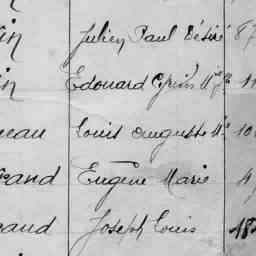 in Julien Paul Désiré 87
in Edouard
eau Louis Auguste 10
and Eugène Marie
aud Joseph Louis 18